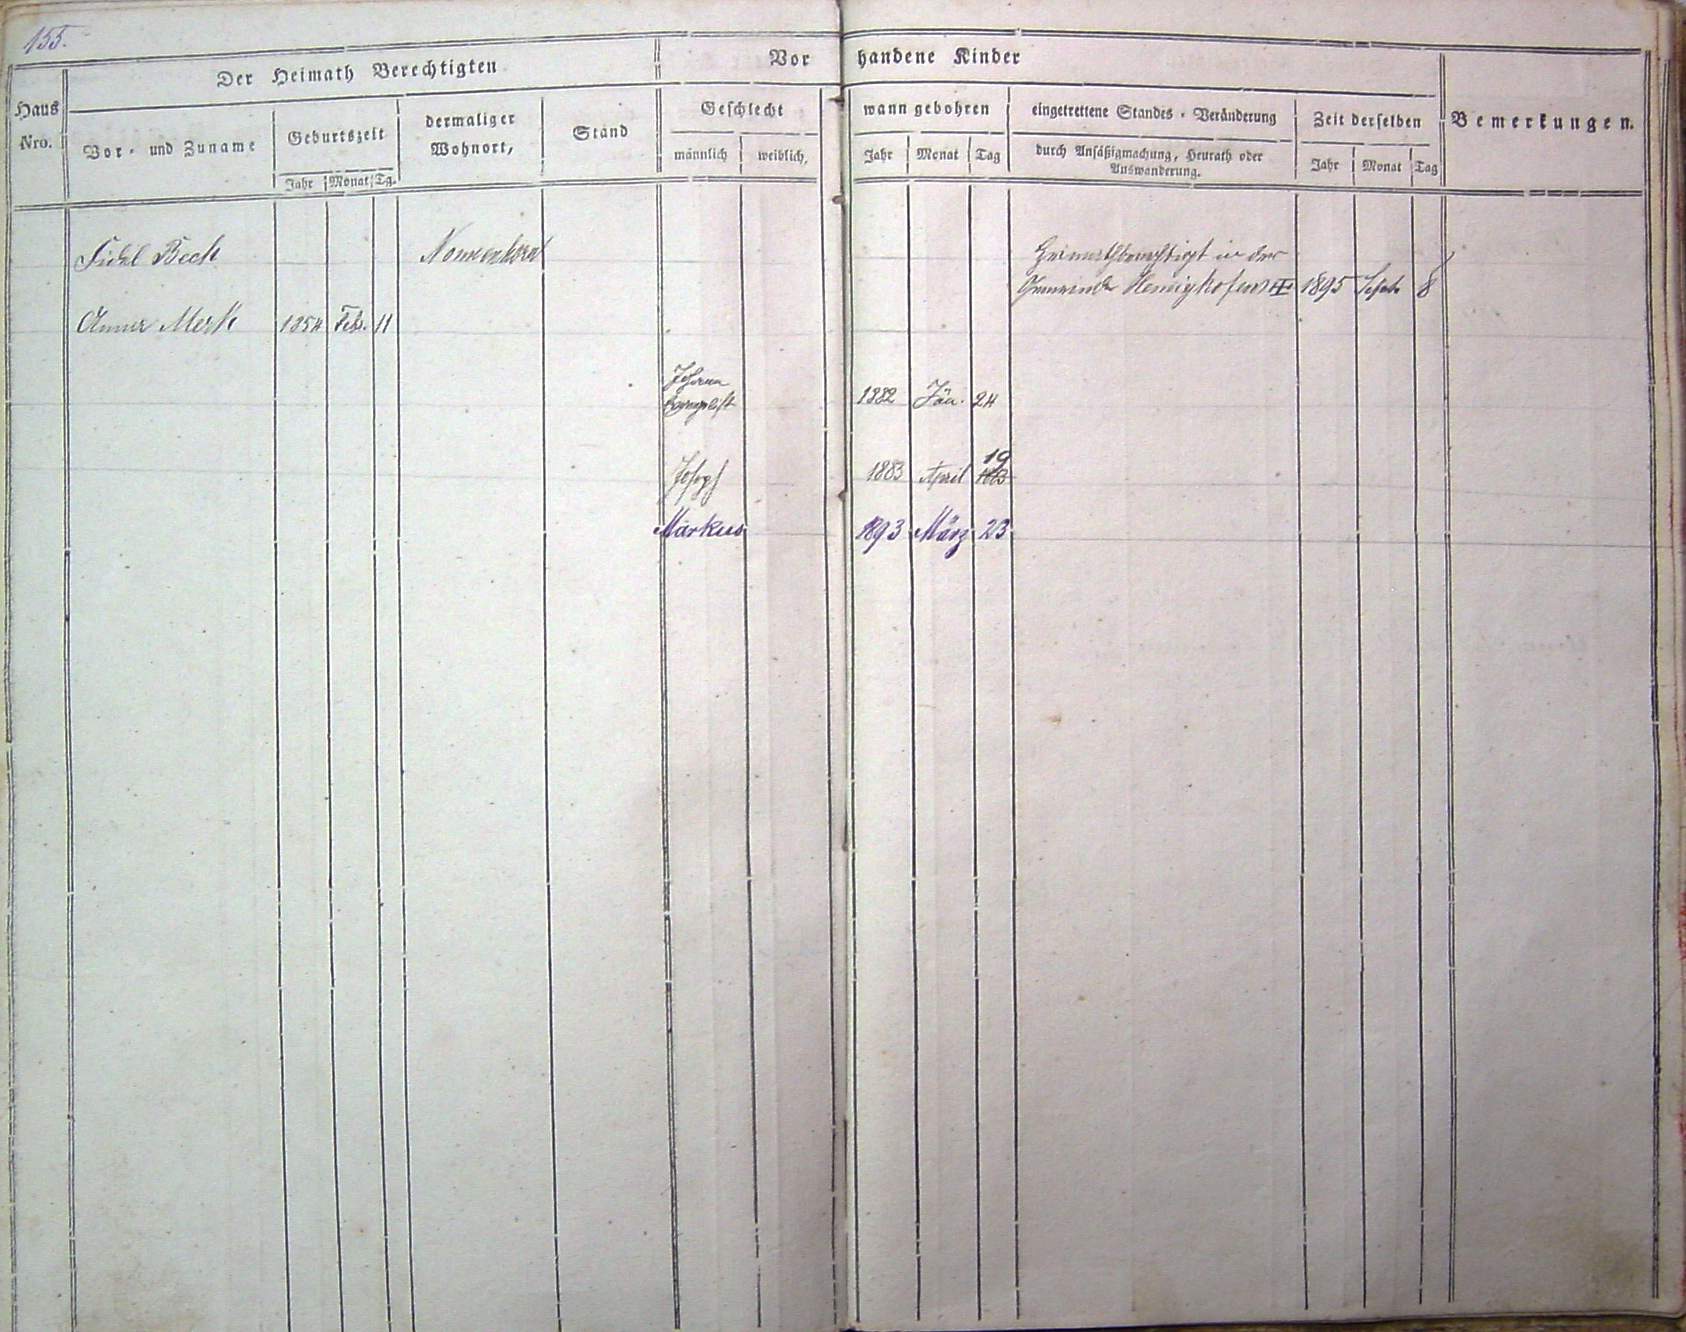 155.
Der Heimath Berechtigten
Vorhandene Kinder
Haus Nro.
Vor- und Zuname
Geburtszeit
Jahr Monat Tg.
dermaliger Wohnort,
Stand
Geschlecht
männlich weiblich,
wann gebohren
Jahr Monat Tag
eingetrettene Standes-Veränderung
durch Ansäßigmachung, Heurath oder
Auswanderung.
Zeit derselben
Jahr Monat Tag
Bemerkungen.
Fidel Beck Nonnenhorn Heimathberechtigt in der
Gemeinde Hemigkofen 1895 Septb. 8
Anna Merk 1854 Feb. 11
Johann
Baptist 1882 Jän. 24
Joseph 1883 April 19
Markus 1893 März 23